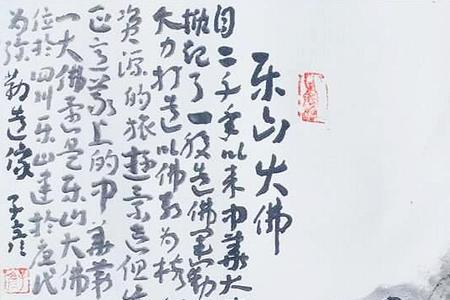 乐山大佛
自二千年以来中华大
掀起了一股造佛
大力打造以佛教为核
资源的旅遊景点但
正意义上的中华第
一大佛还是乐山大佛
位於四川乐山建於唐代
为弥勒造像